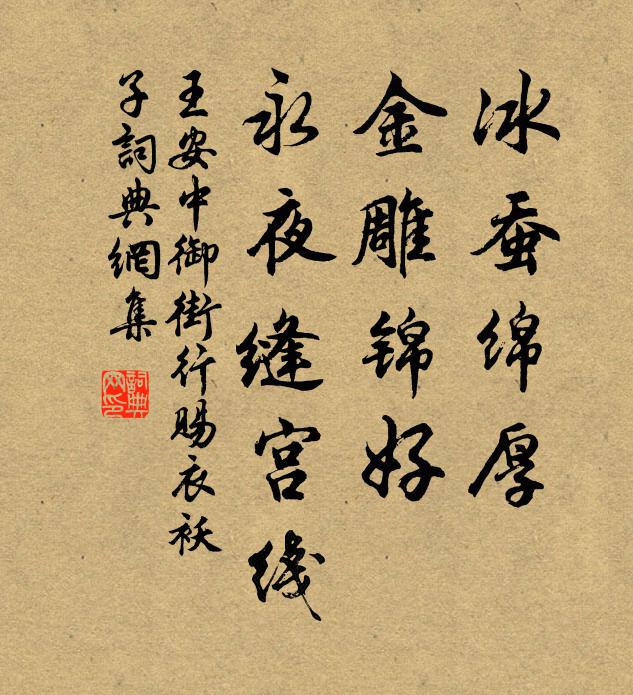 冰蚕绵厚
金雕锦好
永夜缝宫线
王安中御街行赐衣袄
子詞典網集
詞典網印